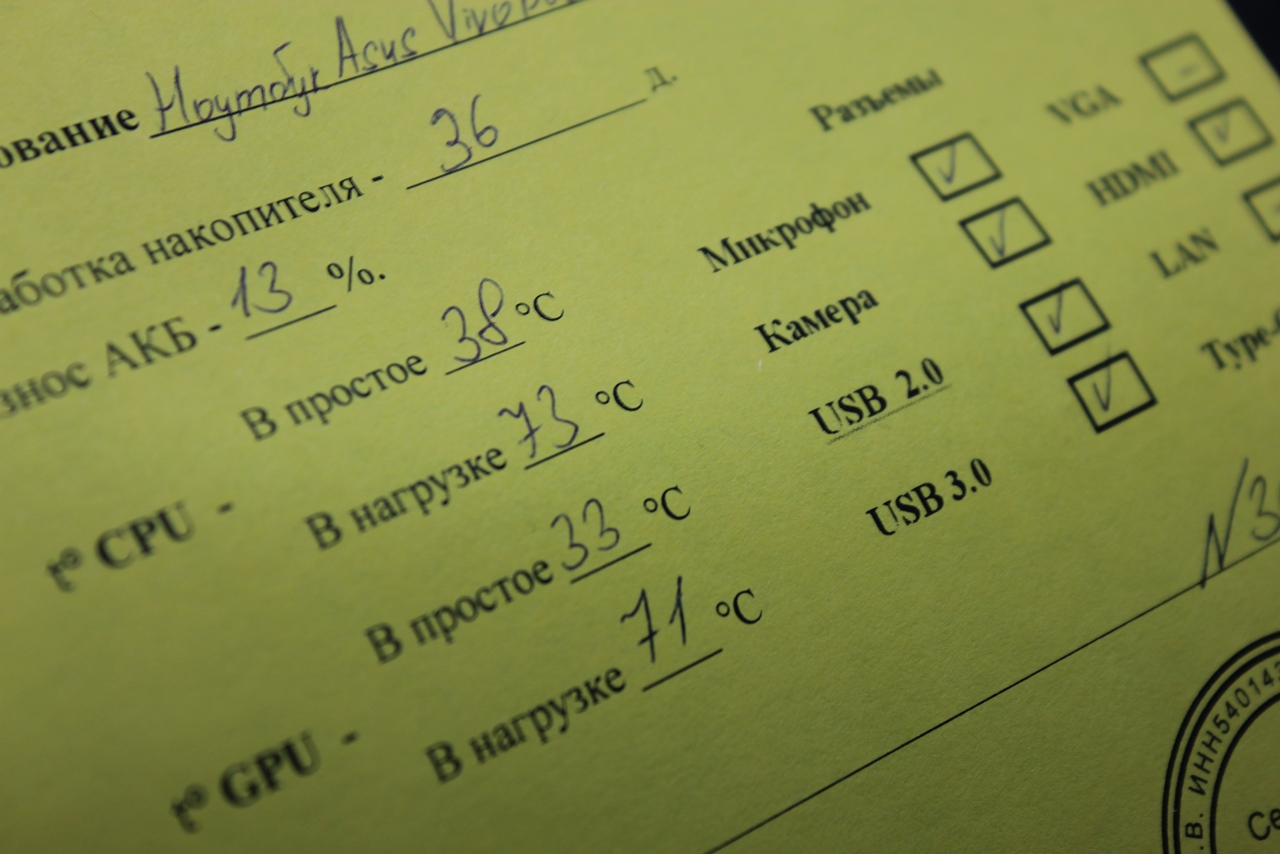 ование Ноутбук Asus Vivobo
аботка накопителя - 36 д.
знос АКБ - 13 %.
t° CPU - В простое 38 °C
В нагрузке 73 °C
t° GPU - В простое 33 °C
В нагрузке 71 °C
Разъемы
Микрофон ✓
Камера ✓
USB 2.0 ✓
USB 3.0 ✓
VGA -
HDMI ✓
LAN
Type-
N3
.В. ИНН54014
Се